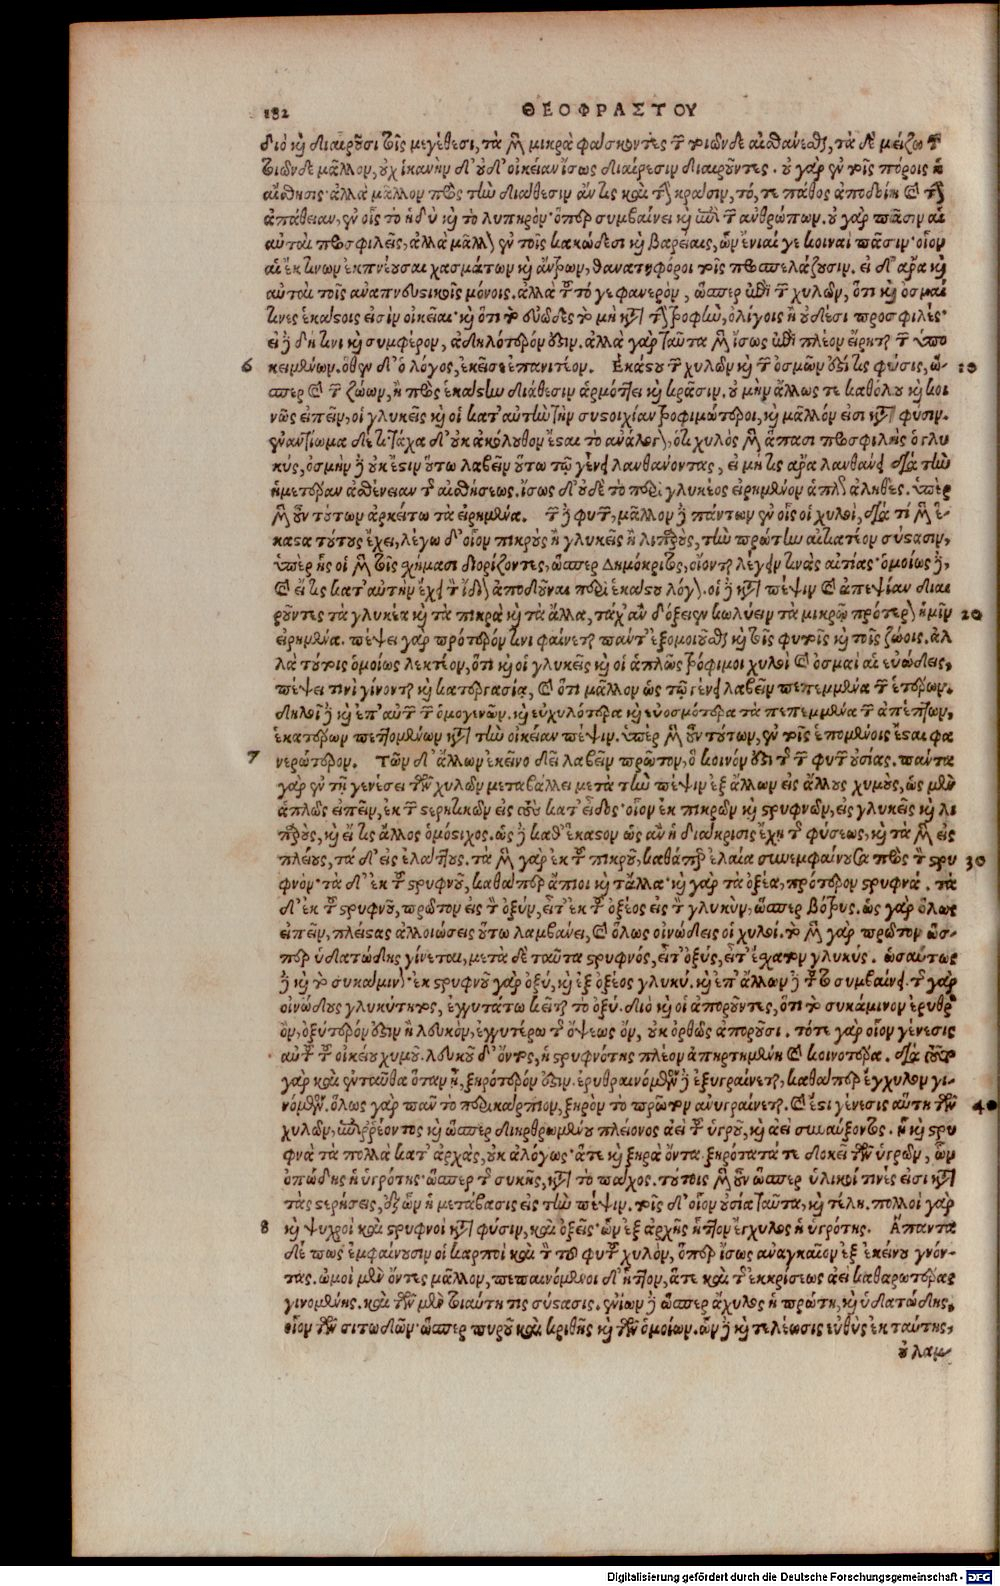 182 ΘΕΟΦΡΑΣΤΟΥ
διὸ καὶ διαιροῦσι τοῖς μεγέθεσι, τὰ μὲν μικρὰ φάσκοντες τῶν τοιῶνδε αἰσθάνεσθαι, τὰ δὲ μείζω τῶν
τοιῶνδε μᾶλλον, οὐχ ἱκανὴν δ' οὐδ' οἰκείαν ἴσως διαίρεσιν διαιροῦντες. οὐ γὰρ ἐν τοῖς πόροις ἡ
αἴσθησις· ἀλλὰ μᾶλλον πρὸς τὴν διάθεσιν ἄν τις καὶ τὴν κρᾶσιν, τό, τε πάθος ἀποδοίη καὶ τὴν
ἀπάθειαν, ἐν οἷς τὸ ἡδὺ καὶ τὸ λυπηρόν· ὅπερ συμβαίνει καὶ ἐπὶ τῶν ἀνθρώπων. οὐ γὰρ πᾶσιν αἱ
αὐταὶ προσφιλεῖς, ἀλλὰ μᾶλλον ἐν τοῖς κακώδεσι καὶ βαρείαις, ὧν ἔνιαί γε κοιναὶ πᾶσιν· οἷον
αἱ ἔκ τινων ἐκπνέουσαι χασμάτων καὶ ἄντρων, θανατηφόροι τοῖς προσπελάζουσιν. εἰ δ' ἄρα καὶ
αὐταὶ τοῖς ἀναπνευστικοῖς μόνοις. ἀλλὰ τοῦτό γε φανερὸν, ὥσπερ ἐπὶ τῶν χυλῶν, ὅτι καὶ ὀσμαί
τινες ἑκάστοις εἰσὶν οἰκεῖαι· καὶ ὅτι τὸ εὐῶδες τὸ μὴ κατὰ τὴν τροφὴν, ὀλίγοις ἢ οὐδέσι προσφιλές·
εἰ δὲ δή τινι καὶ συμφέρον, ἀδηλότερόν ἐστιν. ἀλλὰ γὰρ ταῦτα μὲν ἴσως ἐπὶ πλέον εἴρηται τῶν ὑπο
6 κειμένων. ὅθεν δ' ὁ λόγος, ἐκεῖσε ἐπανιτέον. Ἑκάστου τῶν χυλῶν καὶ τῶν ὀσμῶν ἐστί τις φύσις, ὥ- 10
σπερ καὶ τῶν ζώων, ἢ πρὸς ἑκάστην διάθεσιν ἁρμόττει καὶ κρᾶσιν. οὐ μὴν ἄλλως τε καθόλου καὶ κοι
νῶς εἰπεῖν, οἱ γλυκεῖς καὶ οἱ κατ' αὐτὴν τὴν συστοιχίαν τροφιμώτεροι, καὶ μᾶλλόν εἰσι κατὰ φύσιν.
ἐναντίωμα δέ τι τάχα δ' οὐκ ἀκόλουθον ἔσται τὸ ἀνάλογον, ὅτι χυλὸς μὲν ἅπασι προσφιλὴς ὁ γλυ
κύς, ὀσμὴν δὲ οὐκ ἔστιν οὕτω λαβεῖν οὕτω τῷ γένει λανθάνοντας, εἰ μή τις ἄρα λανθάνει διὰ τὴν
ἡμετέραν ἀσθένειαν τῆς αἰσθήσεως. ἴσως δ' οὐδὲ τὸ περὶ γλυκέος εἰρημένον ἁπλῶς ἀληθές. ὑπὲρ
μὲν οὖν τούτων ἀρκείτω τὰ εἰρημένα. τῶν δὲ φυτῶν, μᾶλλον δὲ πάντων ἐν οἷς οἱ χυλοὶ, διὰ τί μὲν ἕ-
καστα τούτους ἔχει, λέγω δ' οἷον πικροὺς ἢ γλυκεῖς ἢ λιπαροὺς, τὴν πρώτην αἰτιατέον σύστασιν,
ὑπὲρ ἧς οἱ μὲν τοῖς σχήμασι διορίζοντες, ὥσπερ Δημόκριτος, οἴονται λέγειν τινὰς αἰτίας· ὁμοίως δὲ,
καὶ εἴ τις κατ' αὐτὴν ἔχει τὸ ἴδιον ἀποδοῦναι περὶ ἑκάστου λόγον. οἱ δὲ κατὰ πέψιν καὶ ἀπεψίαν διαι
ροῦντες τὰ γλυκέα καὶ τὰ πικρὰ καὶ τὰ ἄλλα, τάχ' ἂν δόξειεν κωλύειν τὰ μικρῷ πρότερον ἡμῖν 20
εἰρημένα. πέψει γὰρ πρότερόν τινι φαίνεται πάντ' ἐξομοιοῦσθαι καὶ τοῖς φυτοῖς καὶ τοῖς ζώοις. ἀλ
λὰ τούτοις ὁμοίως λεκτέον, ὅτι καὶ οἱ γλυκεῖς καὶ οἱ ἁπλῶς τρόφιμοι χυλοὶ καὶ ὀσμαὶ αἱ εὐώδεις,
πέψει τινὶ γίνονται καὶ κατεργασίᾳ, καὶ ὅτι μᾶλλον ὡς τῷ γένει λαβεῖν πεπεμμένα τῶν ἑτέρων.
δηλοῖ δὲ καὶ ἐπ' αὐτῶν τῶν ὁμογενῶν. καὶ εὐχυλότερα καὶ εὐοσμότερα τὰ πεπεμμένα τῶν ἀπέπτων,
ἑκατέρων πεττομένων κατὰ τὴν οἰκείαν πέψιν. ὑπὲρ μὲν οὖν τούτων, ἐν τοῖς ἑπομένοις ἔσται φα
7 νερώτερον. Τῶν δ' ἄλλων ἐκεῖνο δεῖ λαβεῖν πρῶτον, ὃ κοινόν ἐστι τῆς τῶν φυτῶν οὐσίας. πάντα
γὰρ ἐν τῇ γενέσει τῶν χυλῶν μεταβάλλει μετὰ τὴν πέψιν ἐξ ἄλλων εἰς ἄλλους χυμοὺς, ὡς μὲν
ἁπλῶς εἰπεῖν, ἐκ τῶν στερητικῶν εἰς τοὺς κατ' εἶδος· οἷον ἐκ πικρῶν καὶ στρυφνῶν, εἰς γλυκεῖς καὶ λι
παροὺς, καὶ εἴ τις ἄλλος ὁμόστιχος. ὡς δὲ καθ' ἕκαστον ὡς ἂν ἡ διάκρισις ἔχῃ τῆς φύσεως, καὶ τὰ μὲν εἰς
πλείους, τὰ δ' εἰς ἐλάττους. τὰ μὲν γὰρ ἐκ τοῦ πικροῦ, καθάπερ ἐλαία συνεμφαίνουσα πρὸς τὸ στρυ 30
φνόν· τὰ δ' ἐκ τοῦ στρυφνοῦ, καθάπερ ἄπιοι καὶ τἄλλα· καὶ γὰρ τὰ ὀξέα, πρότερον στρυφνά. τὰ
δ' ἐκ τοῦ στρυφνοῦ, πρῶτον εἰς τὸ ὀξύν, εἶτ' ἐκ τοῦ ὀξέος εἰς τὸ γλυκὺν, ὥσπερ βότρυς. ὡς γὰρ ὅλως
εἰπεῖν, πλείστας ἀλλοιώσεις οὕτω λαμβάνει, καὶ ὅλως οἰνώδεις οἱ χυλοί. τὸ μὲν γὰρ πρῶτον ὥσ-
περ ὑδατώδης γίνεται, μετὰ δὲ ταῦτα στρυφνός, εἶτ' ὀξύς, εἶτ' ἔσχατον γλυκύς. ὡσαύτως
δὲ καὶ τὸ συκάμινον· ἐκ στρυφνοῦ γὰρ ὀξύ, καὶ ἐξ ὀξέος γλυκύ. καὶ ἐπ' ἄλλων δὲ τοῦτο συμβαίνει. τῆς γὰρ
οἰνώδους γλυκύτητος, ἐγγυτάτω κεῖται τὸ ὀξύ. διὸ καὶ οἱ ἀποροῦντες, ὅτι τὸ συκάμινον ἐρυθρὸν
ὂν, ὀξύτερόν ἐστιν ἢ λευκὸν, ἐγγυτέρω τῆς ὄψεως ὂν, οὐκ ὀρθῶς ἀποροῦσι. τότε γὰρ οἷον γένεσις
αὐτοῦ τοῦ οἰκείου χυμοῦ. λευκοῦ δ' ὄντος, ἡ στρυφνότης πλέον ἀπηρτημένη καὶ κοινοτέρα. διὰ τοῦτο
γὰρ καὶ ἐνταῦθα ὅταν ᾖ, ξηρότερόν ἐστιν. ἐρυθραινόμενον δὲ ἐξυγραίνεται, καθάπερ ἔγχυλον γι-
νόμενον. ὅλως γὰρ πᾶν τὸ περικάρπιον, ξηρὸν τὸ πρῶτον ἀνυγραίνεται. καὶ ἔστι γένεσις αὕτη τῶν 40
χυλῶν, ἐπιρρέοντος καὶ ὥσπερ διηρθρωμένου πλείονος ἀεὶ τοῦ ὑγροῦ, καὶ ἀεὶ συναύξοντος. ἢ καὶ στρυ
φνὰ τὰ πολλὰ κατ' ἀρχὰς, οὐκ ἀλόγως· ἅτε καὶ ξηρὰ ὄντα. ξηρότατά τε δοκεῖ τῶν ὑγρῶν, ὧν
ὀπώδης ἡ ὑγρότης· ὥσπερ τῆς συκῆς, κατὰ τὸ πάχος. τούτοις μὲν οὖν ὥσπερ ὑλικοί τινές εἰσι κατὰ
τὰς στερήσεις, ἐξ ὧν ἡ μετάβασις εἰς τὴν πέψιν. τοῖς δ' οἷον οὐσία ταῦτα, καὶ τέλη. πολλοὶ γὰρ
8 καὶ ψυχροὶ καὶ στρυφνοὶ κατὰ φύσιν, καὶ ὀξεῖς· ὧν ἐξ ἀρχῆς ἧττον ἔγχυλος ἡ ὑγρότης. Ἅπαντα
δέ πως ἐμφαίνουσιν οἱ καρποὶ καὶ τὸ τοῦ φυτοῦ χυλὸν, ὅπερ ἴσως ἀναγκαῖον ἐξ ἐκείνου γνόν-
τας. ὠμοὶ μὲν ὄντες μᾶλλον, πεπαινόμενοι δ' ἧττον, ἅτε καὶ τῆς ἐκκρίσεως ἀεὶ καθαρωτέρας
γινομένης. καὶ τῶν μὲν τοιαύτη τις σύστασις. ἐνίων δὲ ὥσπερ ἄχυλος ἡ πρώτη, καὶ ὑδατώδης,
οἷον τῶν σιτωδῶν· ὥσπερ πυροῦ καὶ κριθῆς καὶ τῶν ὁμοίων. ὧν δὲ καὶ τελέωσις εὐθὺς ἐκ ταύτης,
οὐ λαμ-
Digitalisierung gefördert durch die Deutsche Forschungsgemeinschaft - DFG